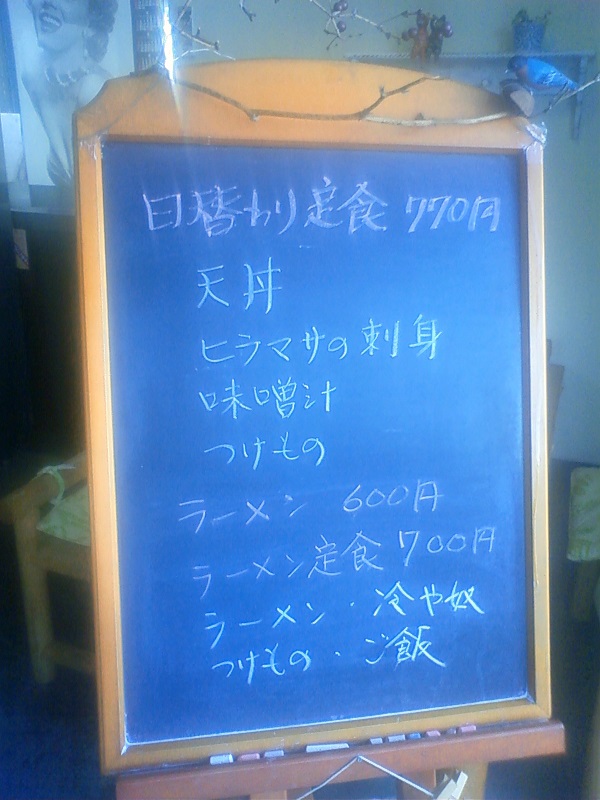 日替わり定食 770円
天丼
ヒラマサの刺身
味噌汁
つけもの
ラーメン 600円
ラーメン定食 700円
ラーメン・冷や奴
つけもの・ご飯